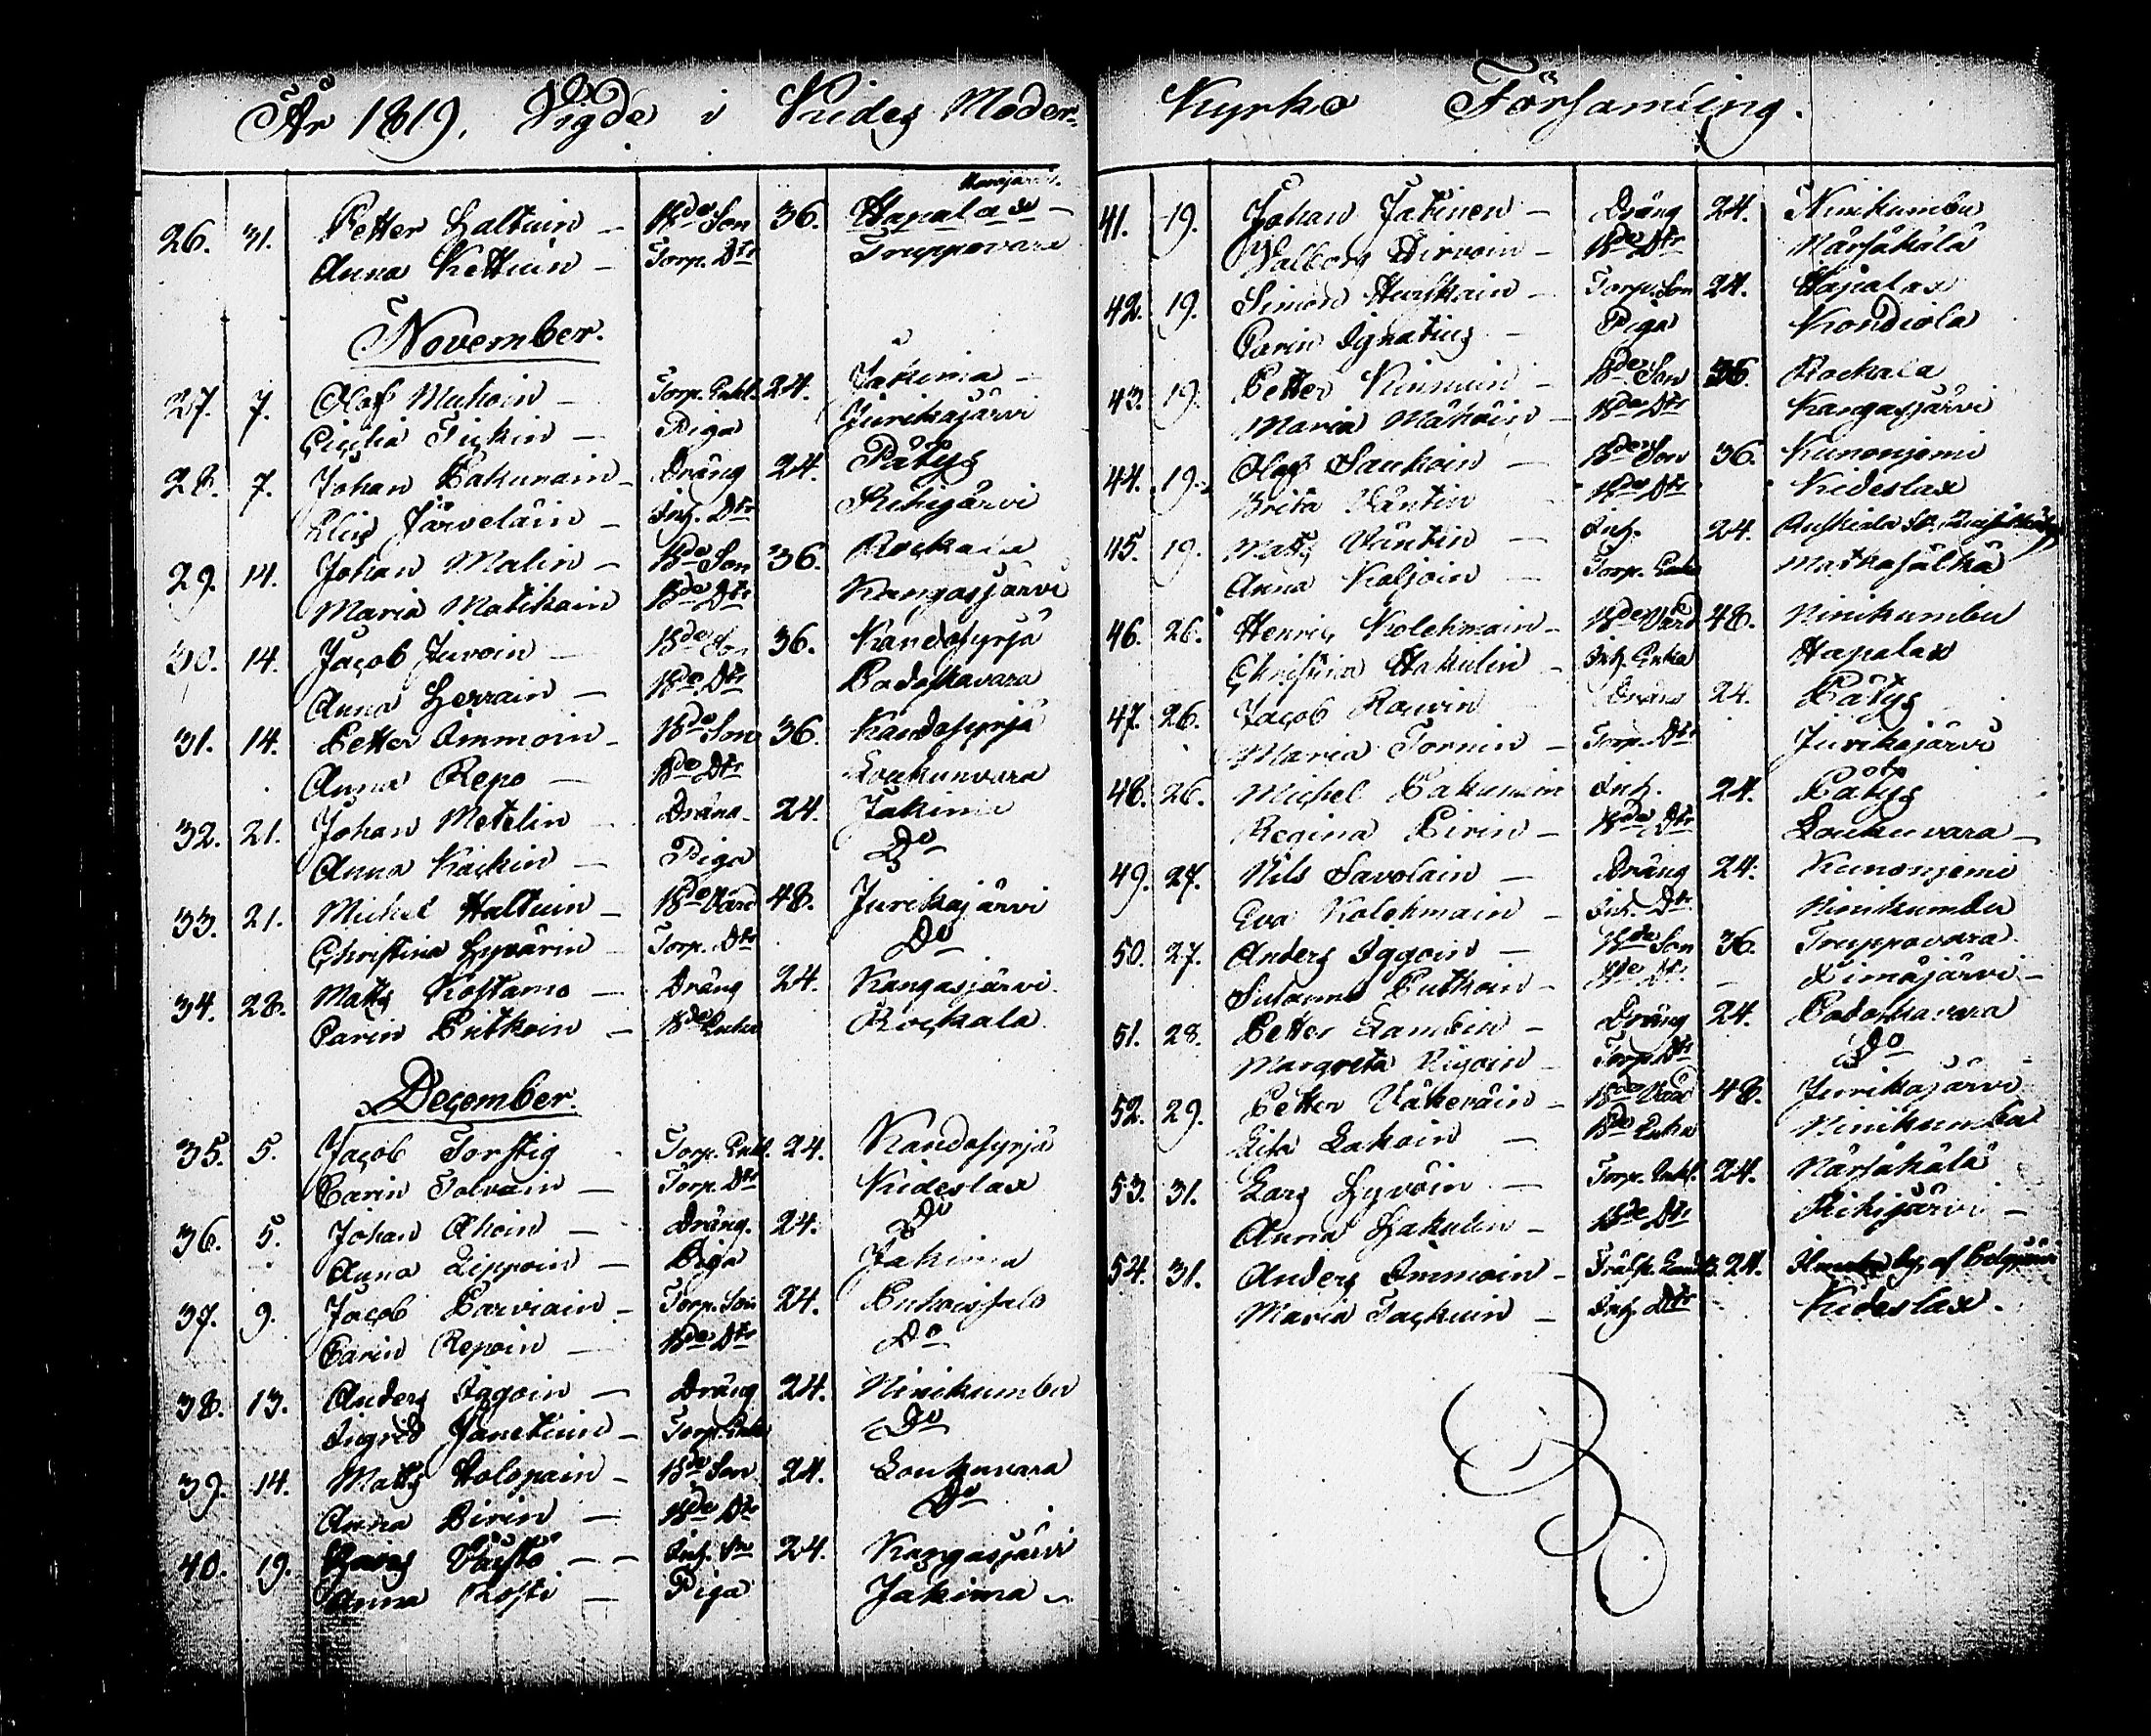 År 1819. Vigde i Kides Moder-
26. 31. Petter Haltuin — Bde Son 36. Hapalax —
Anna Kettuin — Torp. Dtr Truppovara
November.
27. 7. Olof Muhoin — Torp. Enkl. 24. Jakima —
Cicilia Tickin — Piga Jurikajärvi
28. 7. Johan Pakunain — Dräng 24. Pätys
Elin Järveläin — Inh. Dtr Rihijärvi
29. 14. Johan Malin — Bde Son 36. Rockala
Maria Matikain Bde Dtr Kangasjärvi
30. 14. Jacob Juvoin — Bde Son 36. Kandosyrjä
Anna Herrain — Bde Dtr Podoskavara
31. 14. Petter Immoin — Bde Son 36. Kandosyrjä
Anna Repo — Bde Dtr Loukunvara
32. 21. Johan Metelin — Dräng 24. Jakima
Anna Kackin — Piga Do
33. 21. Michel Haltuin — Bde Värd 48. Jurikajärvi
Christina Hyvärin — Torp. Dtr Do
34. 28. Matts Kostamo — Dräng 24. Kangasjärvi.
Carin Pitkoin — Bde Enka Rockala
December.
35. 5. Jacob Torstig Torp. Enkl. 24. Kandosyrjä
Carin Tolvain — Torp. Dtr Kideslax
36. 5. Johan Ahoin — Dräng. 24. Do
Anna Lippoin — Piga Jakima
37. 9. Jacob Parviain — Torp. Son 24. Puhoissalo
Carin Repoin — Bde Dtr Do
38. 13. Anders Iggoin — Dräng 24. Ninikumbu
Ingrid Janetuin — Torp. Enka Do
39. 14. Matts Holopain — Bde Son 24. Loukuvara
Anna Pirin — Bde Dtr Do
40. 19. Väistö — Inh. Son 24. Kangasjärvi
Anna Rosti — Piga Jakima
Kyrko Församling.
41. 19. Johan Jatinen — Dräng 24. Ninikumbu
Valborg Hirvoin — Bde Dtr Närsäkälä
42. 19. Simon Huskoin — Torp. Son 24. Hapalax
Carin Ignatius — Piga Kondiola
43. 19. Petter Kinnuin — Bde Son 36. Rockala
Maria Mähöin — Bde Dtr Kangasjärvi
44. 19. Olof Saukoin — Bde Son 36. Kunonjemi
Brita Väntin Bde Dtr Kideslax
45. 19. Matts Väntin — Inh. 24.
Anna Koljoin — Torp. Enka Matkasälkä
46. 26. Henric Kolehmain — Bde Värd 48. Ninikumbu
Christina Hakulin — Inh. Enka Hapalax
47. 26. Jacob Dräng 24. Pätys
Maria Tornin — Torp. Dtr Jurikajärvi
48. 26. Michel Pakunain Inh. 24. Pätys
Regina Pirin — Bde Dtr Loukuvara —
49. 27. Nils Savolain — Dräng 24. Kunonjemi
Eva Kolehmain — Inh. Dtr Ninikumbu
50. 27. Anders Iggoin — Bde Son 36. Truppovara
Susanna Putkoin — Bde Dtr —
51. 28. Petter Lambin — Dräng 24. Podoskavara
Margreta Rigoin — Torp. Dtr Do
52. 29. Petter Väkeväin — Bde Värd 48. Jurikajärvi
Lisa Lakoin — Bde Enka Ninikumbu
53. 31. Lars Hyvöin — Torp. Enkl. 24. Närsäkälä
Anna Hakulin — Bde Dtr Rihijärvi —
54. 31. Anders Immoin — 24.
Maria Tackuin — Inh. Dtr Kideslax.